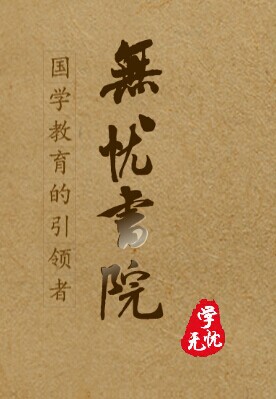 無忧書院
国学教育的引领者
学
无忧